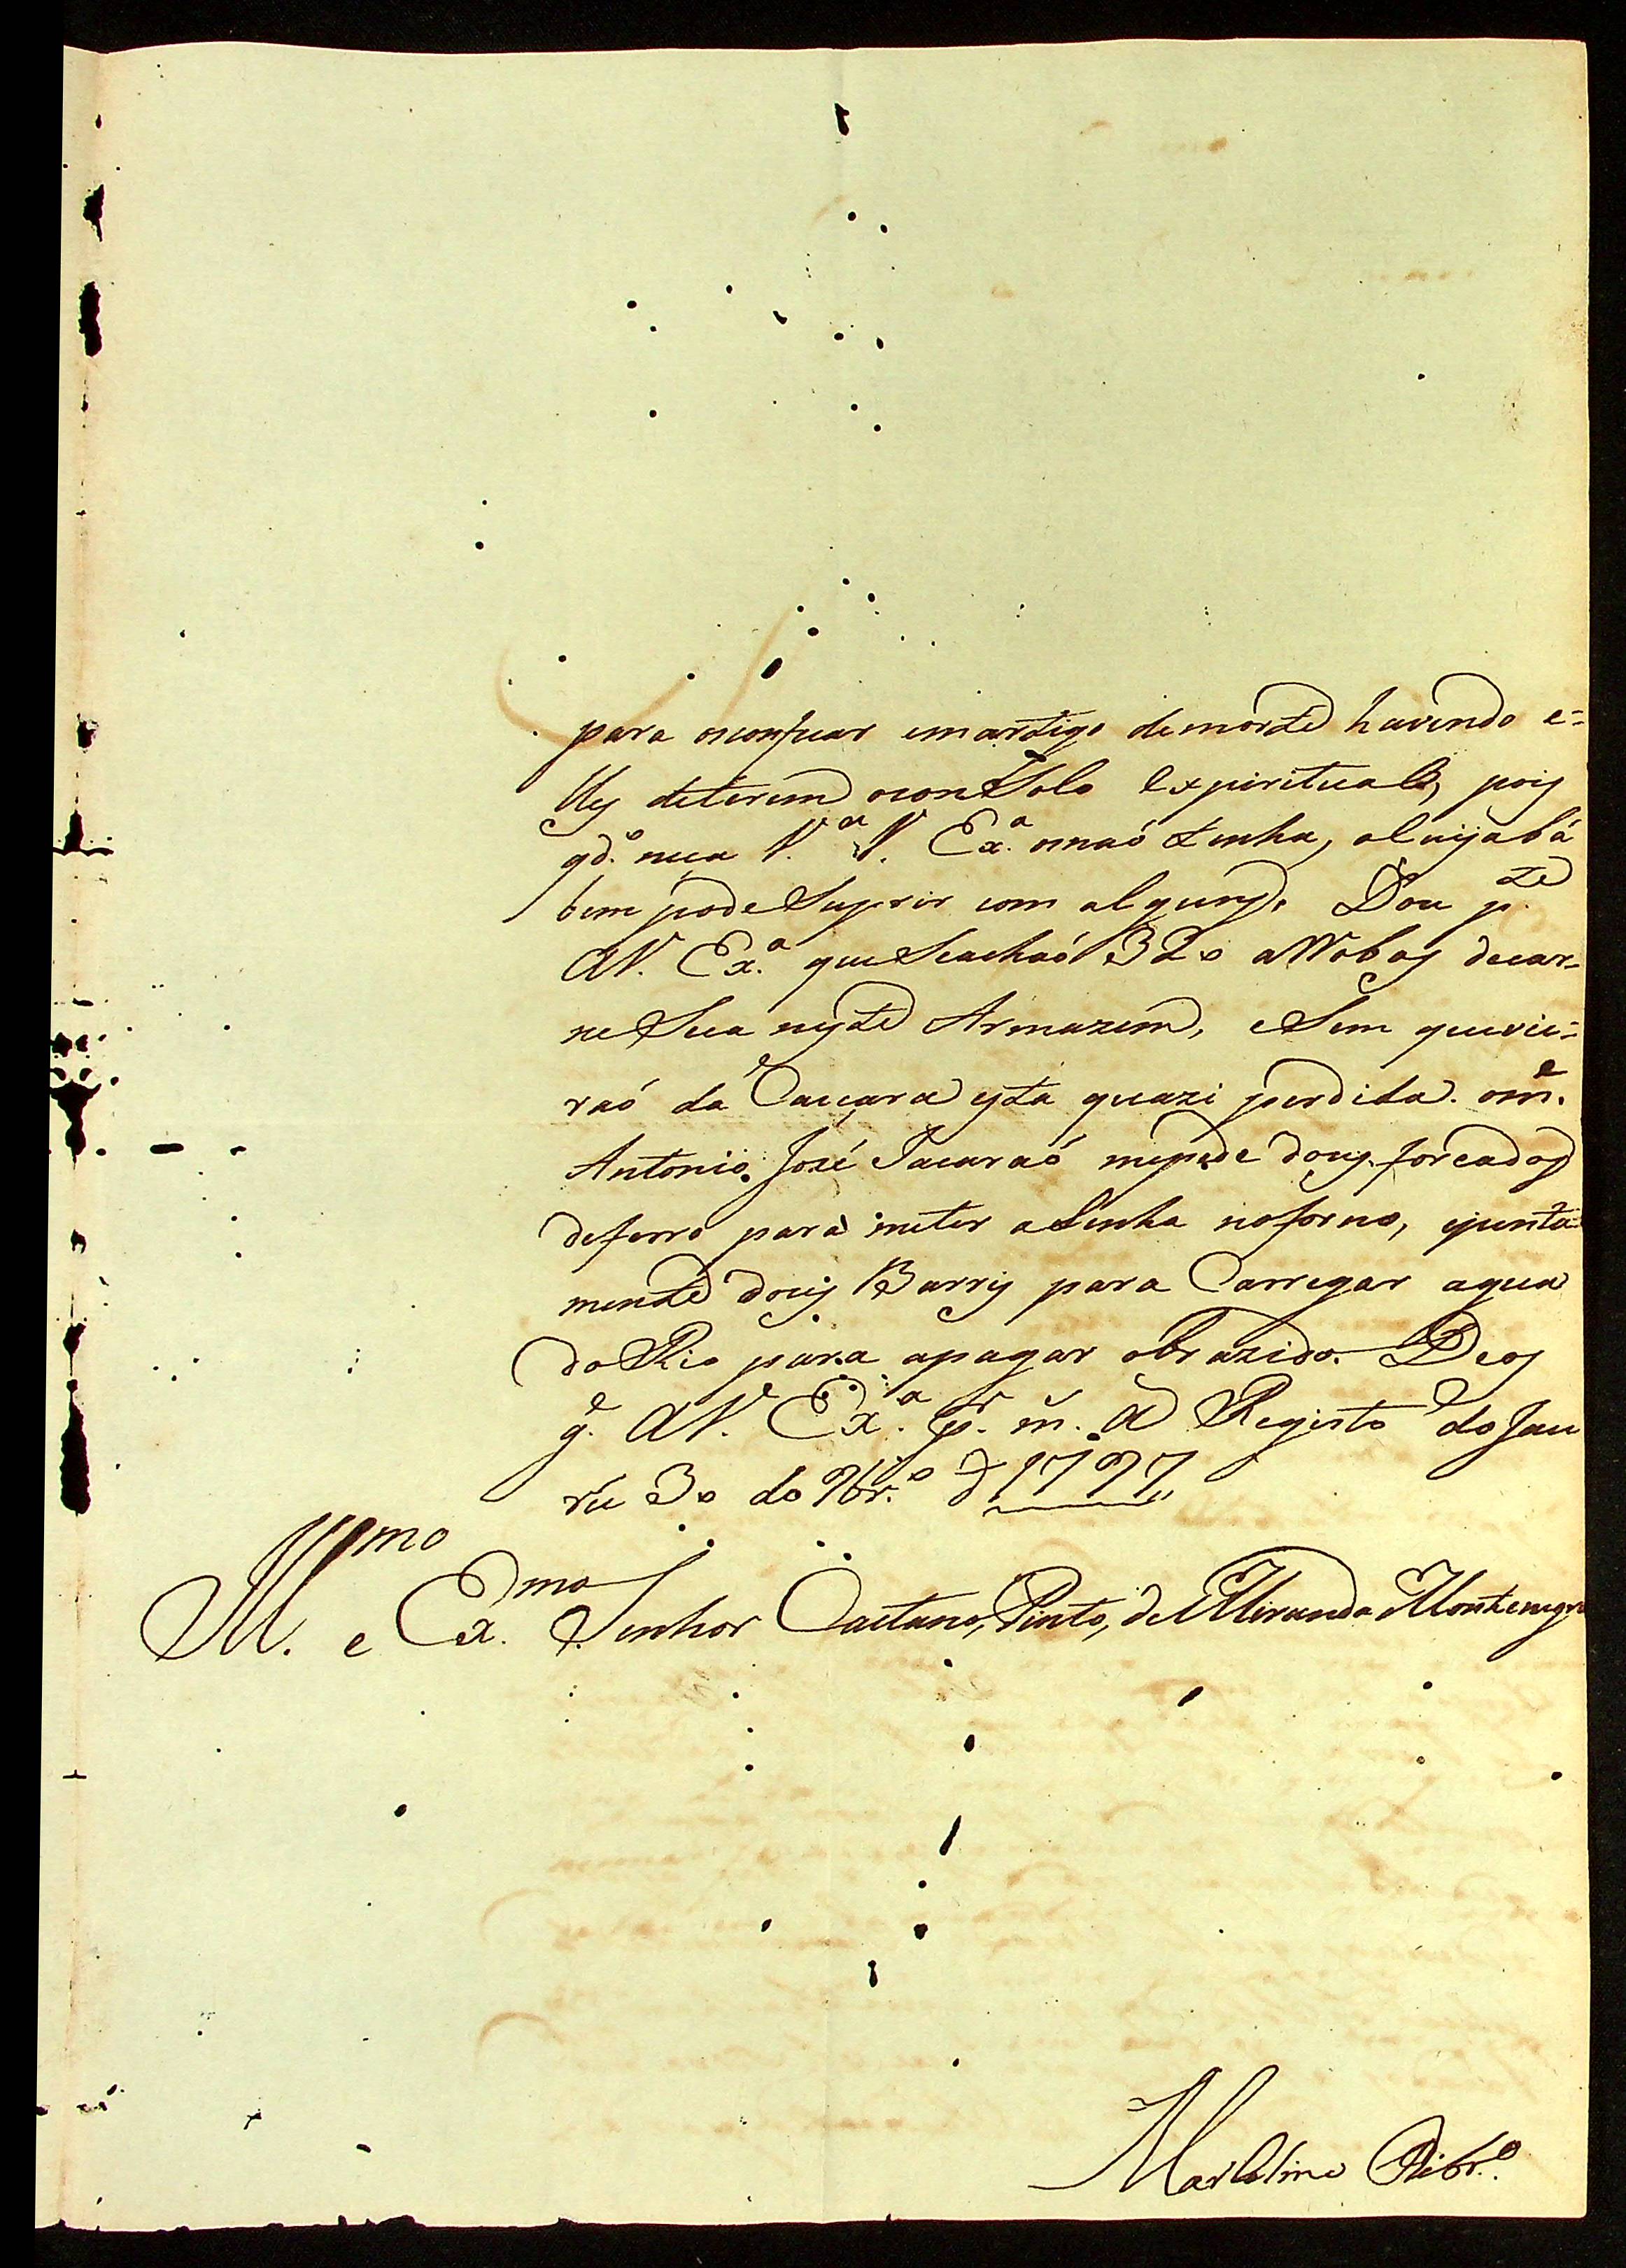 para osconfiçar emartigo demorte havendo e-
lles deterem oconsolo expirituale, pois
qd.º nessa V.ª V. Ex.ª onaó tenha, aluijabá
bem pode Suprir com alguns. Dou p.te
AV. Ex.ª que Seachaó 320 aRobas decar-
ne Seca neste Armazem, eSem quevie-
raó da Caiçara esta quazi perdida. om.e
Antonio José Jacaraó mepede dous forcados
deferro para meter aLenha noforno, ejunta
mente dous Barris para Carregar agua
do Rio para apagar obrazido. Deos
g.e AV. Ex.ª p.r m. a Registo do Jau
rú 30 de 9br.º d 1797
Ill.mo e Ex.mo Senhor Caetano, Pinto, de Miranda Montenegro
Marcelino Ribr.º